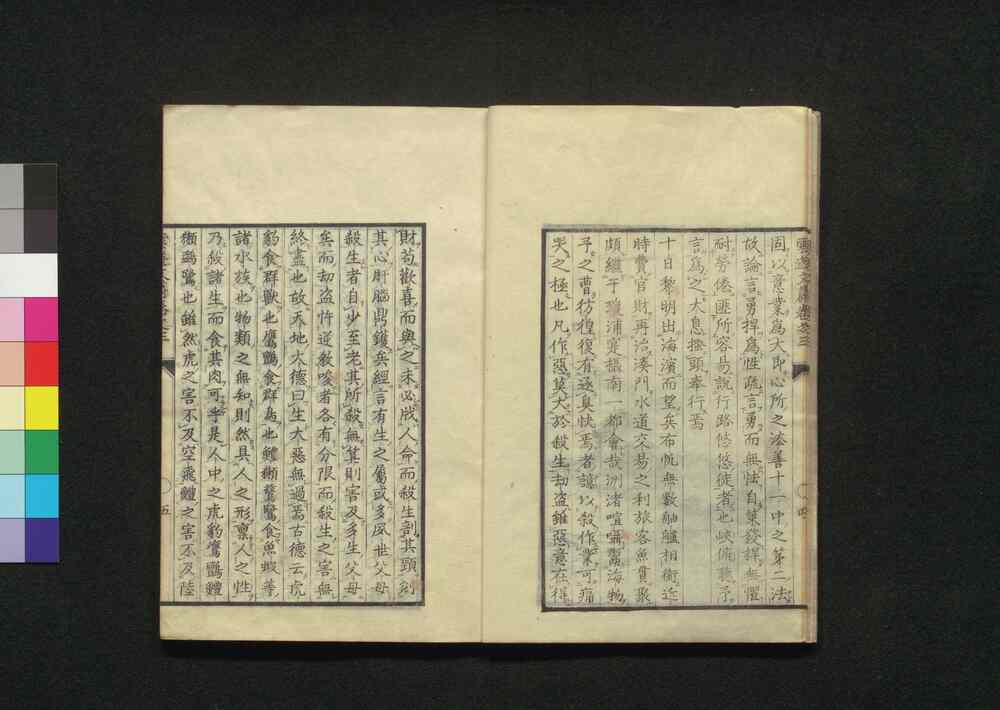 固以意業為大即心所之法善十一中之第二法
故論言勇悍為性疏言勇而無怯自策發悍無懼
耐勞倦匪所容易說行路悠悠徒者也峽俯聽予
言為之大息擡頭奉行焉
十日黎明出海濱而望兵布帆無數舳艫相銜近
時費官財再治湊門水道交易之利旅客魚貫聚
頗繼于難浦寔攝南一都會哉洲渚喧囂鬻海物
予之曹彷徨復有逐臭快焉者噫以殺作業可痛
哭之極也凡作惡莫大於殺生劫盜雖惡意在得
財苟歡喜而與之未必戕人命而殺生剖其頸刳
其心肝腦鼎鑊兵經言有生之屬或多夙世父母
殺生者自少至老其所殺無算則害及多生父母
矣而劫盜忤逆教唆者各有分限而殺生之害無
終盡也故天地大德曰生大惡無過焉古德云虎
豹食群獸也鷹鸇食群鳥也鱧獺鶖鷺食魚蝦等
諸水族也物類之無知則然具人之形稟人之性
乃殺諸生而食其肉可乎是人中之虎豹鷹鸇鱧
獺鶖鷺也雖然虎之害不及空飛鱧之害不及陸
五
四